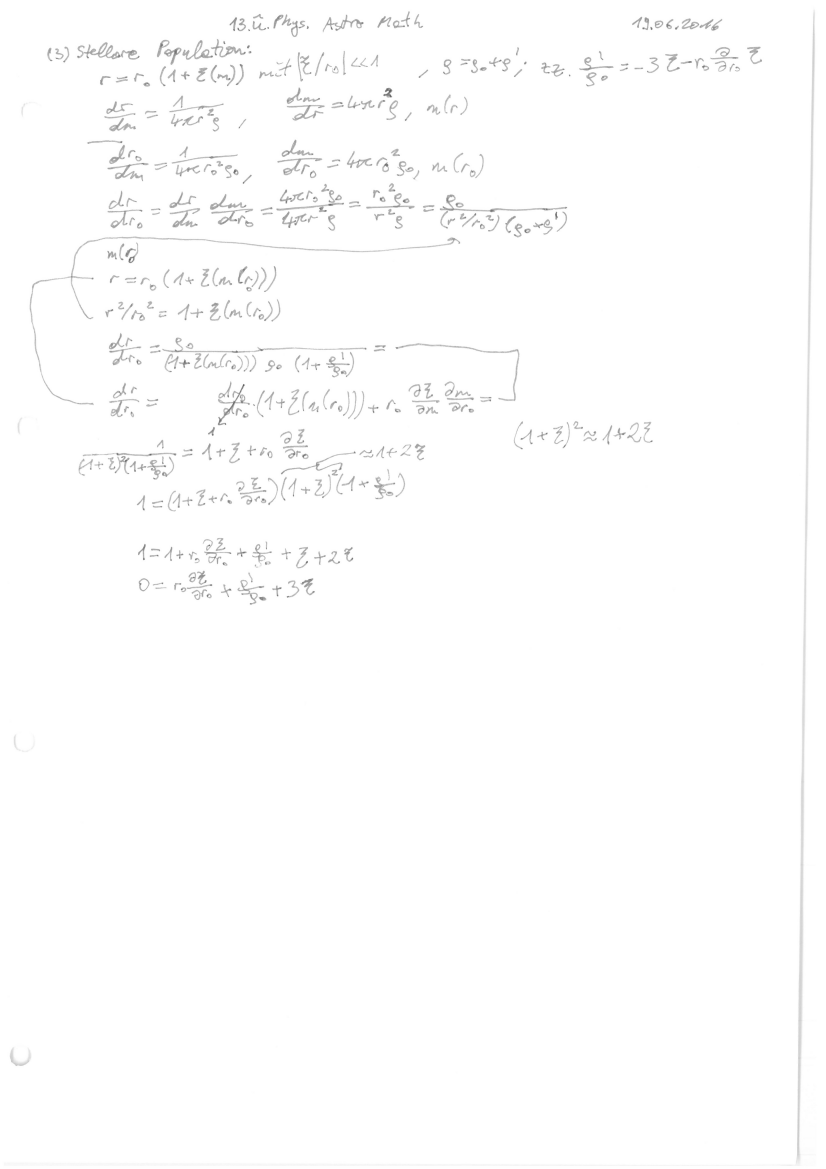 13.Ü. Phys. Astro Math 19.06.2016
(3) Stellare Population:
r = r₀ (1+ξ(m)) mit |ξ/r₀| ≪ 1 , ρ = ρ₀+ρ' ; zz. ρ'/ρ₀ = -3ξ - r₀ ∂/∂r₀ ξ
dr/dm = 1/(4πr²ρ) , dm/dr = 4πr²ρ , m(r)
dr₀/dm = 1/(4πr₀²ρ₀) , dm/dr₀ = 4πr₀²ρ₀, m(r₀)
dr/dr₀ = dr/dm dm/dr₀ = 4πr₀²ρ₀/4πr²ρ = r₀²ρ₀/r²ρ = ρ₀/((r²/r₀²)(ρ₀+ρ'))
m(r₀)
r = r₀ (1+ξ(m(r₀)))
r²/r₀² = 1+ξ(m(r₀))
dr/dr₀ = ρ₀/((1+ξ(m(r₀))) ρ₀ (1+ρ'/ρ₀)) =
dr/dr₀ = dr₀/dr₀ · (1+ξ(m(r₀))) + r₀ ∂ξ/∂m ∂m/∂r₀ =
1
(1+ξ)² ≈ 1+2ξ
1/((1+ξ)²(1+ρ'/ρ₀)) = 1+ξ+r₀ ∂ξ/∂r₀ ≈ 1+2ξ
1 = (1+ξ+r₀ ∂ξ/∂r₀)(1+ξ)²(1+ρ'/ρ₀)
1 = 1+r₀ ∂ξ/∂r₀ + ρ'/ρ₀ + ξ + 2ξ
0 = r₀ ∂ξ/∂r₀ + ρ'/ρ₀ + 3ξ